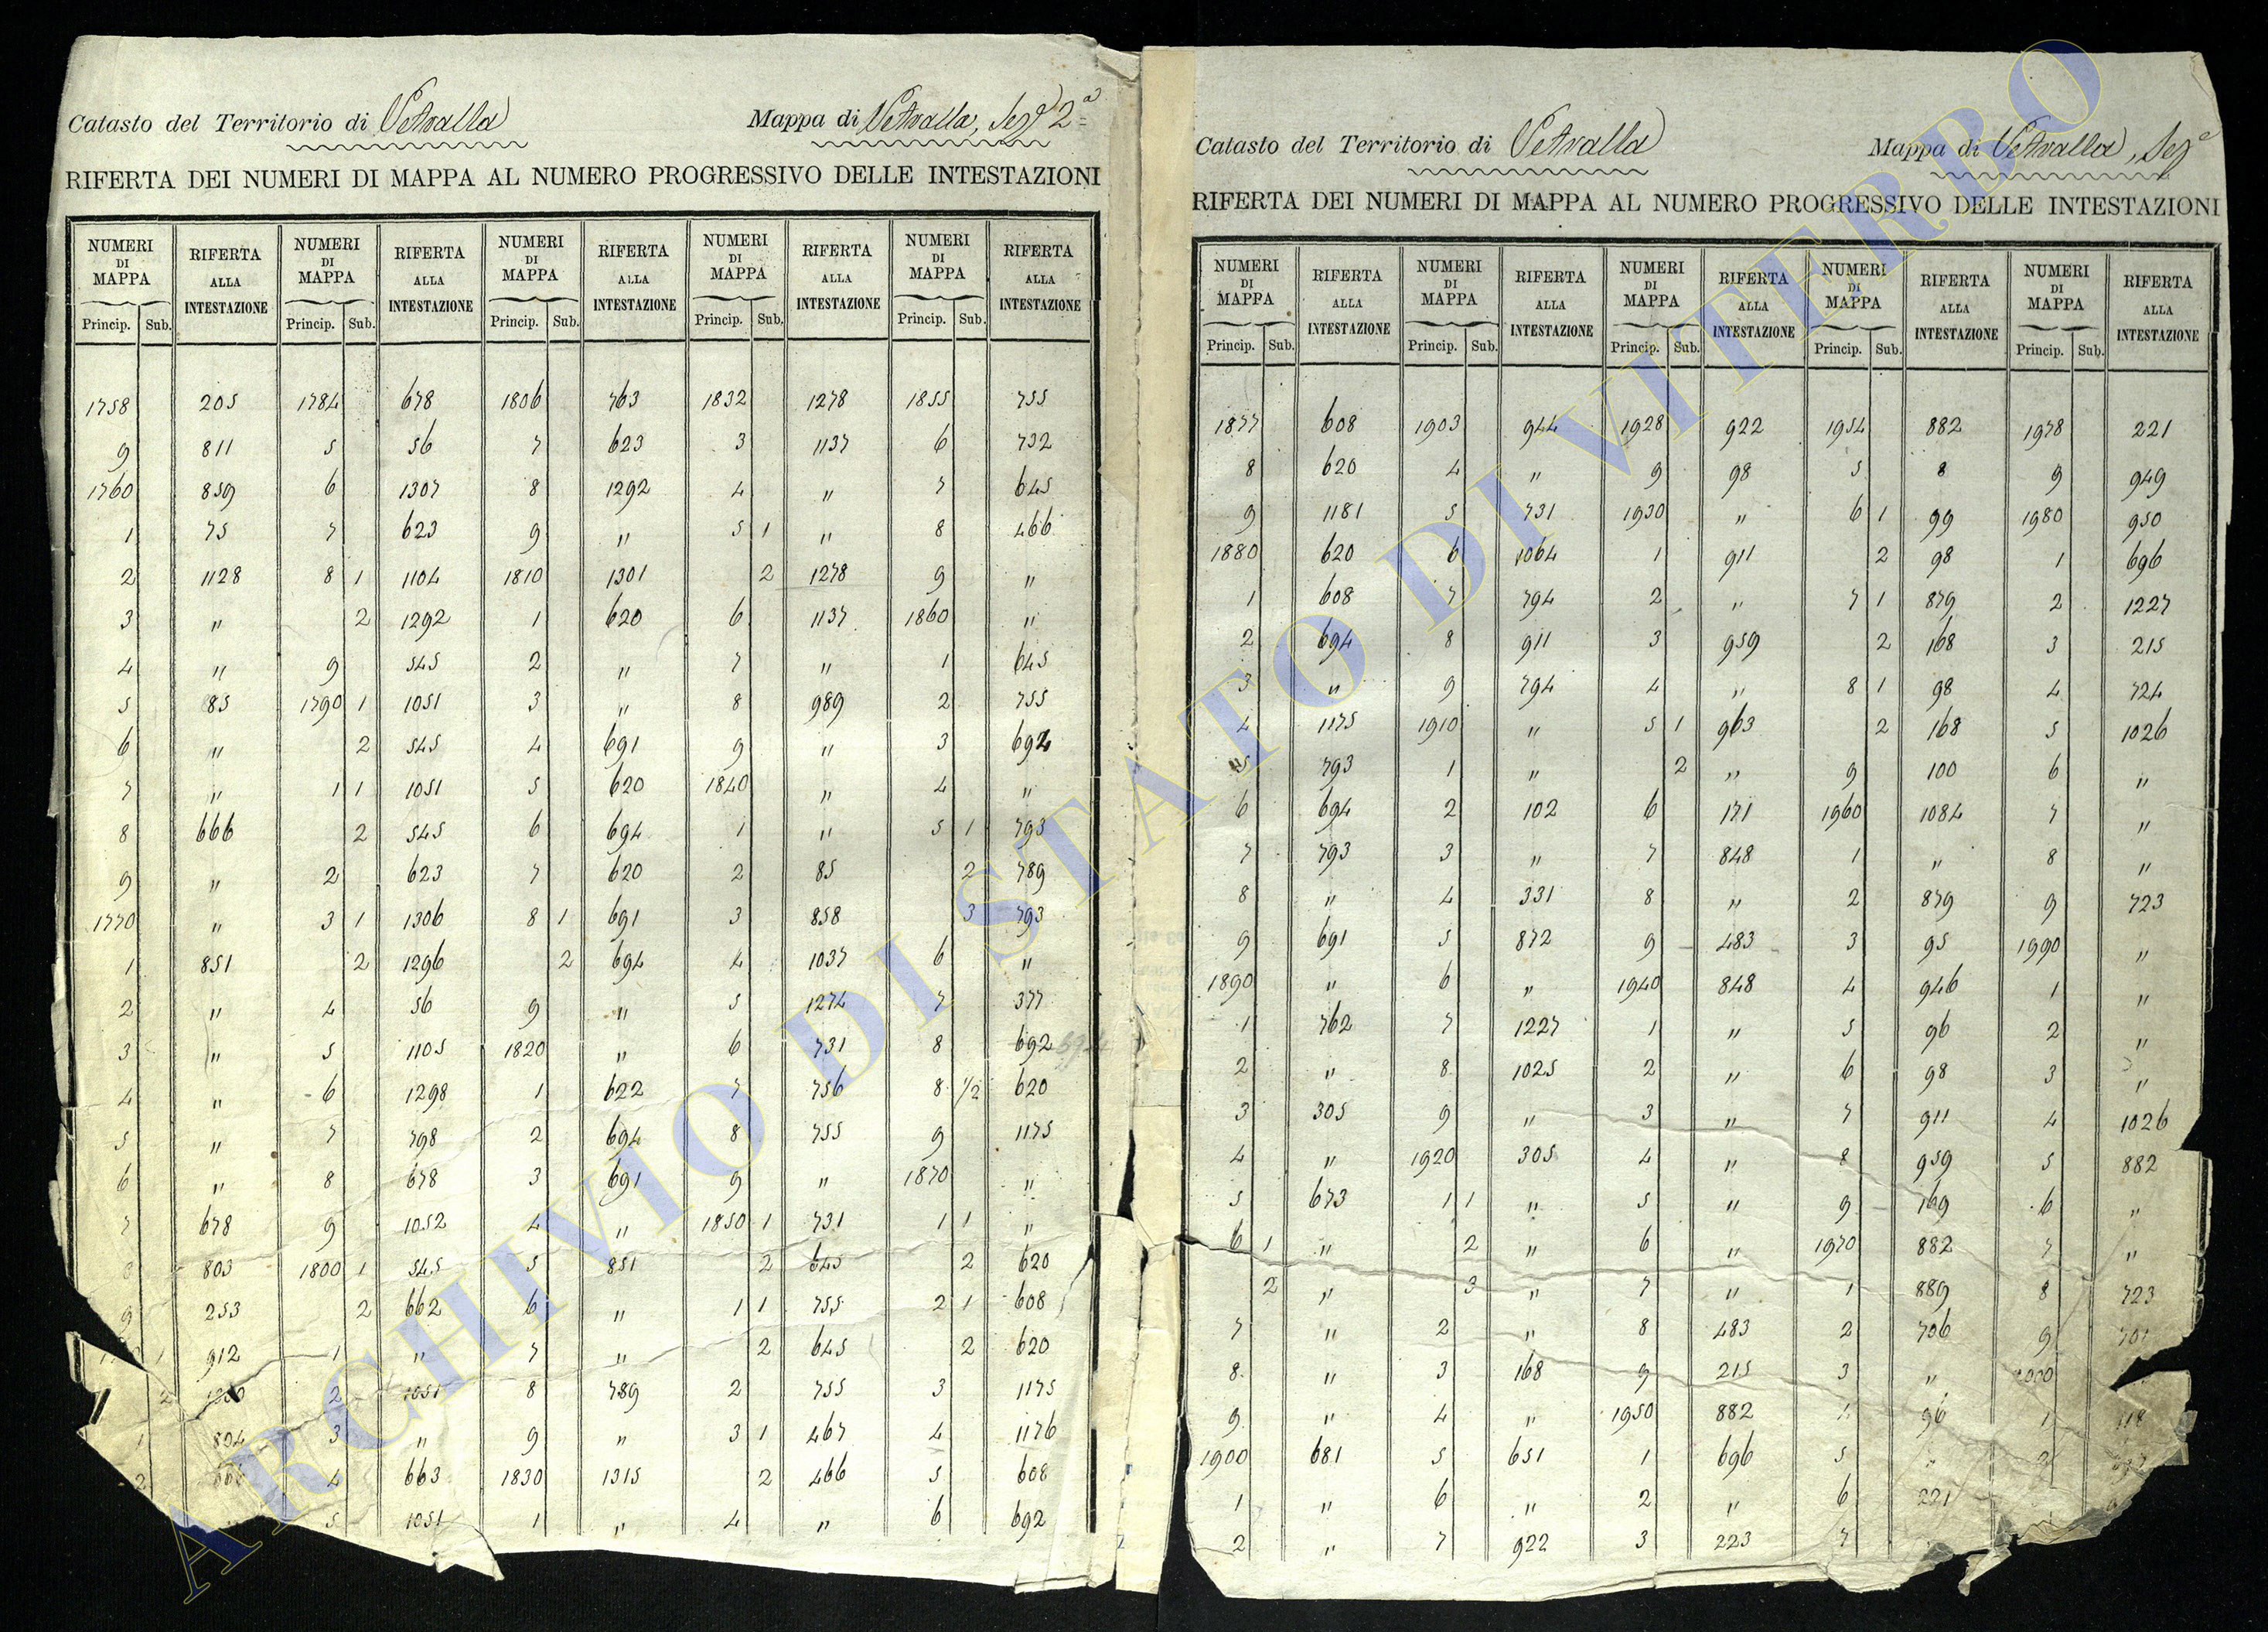 Catasto del Territorio di Vetralla Mappa di Vetralla, Sezᵉ 2ª
RIFERTA DEI NUMERI DI MAPPA AL NUMERO PROGRESSIVO DELLE INTESTAZIONI
NUMERI DI MAPPA RIFERTA ALLA INTESTAZIONE NUMERI DI MAPPA RIFERTA ALLA INTESTAZIONE NUMERI DI MAPPA RIFERTA ALLA INTESTAZIONE NUMERI DI MAPPA RIFERTA ALLA INTESTAZIONE NUMERI DI MAPPA RIFERTA ALLA INTESTAZIONE
Princip. Sub. Princip. Sub. Princip. Sub. Princip. Sub. Princip. Sub.
1758 205 1784 678 1806 763 1832 1278 1855 755
9 811 5 56 7 623 3 1137 6 732
1760 859 6 1307 8 1292 4 " 7 645
1 75 7 623 9 " 5 1 " 8 466
2 1128 8 1 1104 1810 1301 2 1278 9 "
3 " 2 1292 1 620 6 1137 1860 "
4 " 9 545 2 " 7 " 1 645
5 85 1790 1 1051 3 " 8 989 2 755
6 " 2 545 4 691 9 " 3 694
7 " 1 1 1051 5 620 1840 " 4 "
8 666 2 545 6 694 1 " 5 1 793
9 " 2 623 7 620 2 85 2 789
1770 " 3 1 1306 8 1 691 3 858 3 793
1 851 2 1296 2 694 4 1037 6 "
2 " 4 56 9 " 5 1274 7 377
3 " 5 1105 1820 " 6 731 8 692
4 " 6 1298 1 622 7 756 8 1/2 620
5 " 7 798 2 694 8 755 9 1175
6 " 8 678 3 691 9 " 1870 "
7 678 9 1052 4 " 1850 1 731 1 1 "
8 803 1800 1 545 5 851 2 645 2 620
9 253 2 662 6 " 1 1 755 2 1 608
912 1 " 7 " 2 645 2 620
2 2 1051 8 789 2 755 3 1175
1 804 3 " 9 " 3 1 467 4 1176
2 4 663 1830 1315 2 466 5 608
5 1051 1 " 4 " 6 692
Catasto del Territorio di Vetralla Mappa di Vetralla, Sezᵉ
RIFERTA DEI NUMERI DI MAPPA AL NUMERO PROGRESSIVO DELLE INTESTAZIONI
NUMERI DI MAPPA RIFERTA ALLA INTESTAZIONE NUMERI DI MAPPA RIFERTA ALLA INTESTAZIONE NUMERI DI MAPPA RIFERTA ALLA INTESTAZIONE NUMERI DI MAPPA RIFERTA ALLA INTESTAZIONE NUMERI DI MAPPA RIFERTA ALLA INTESTAZIONE
Princip. Sub. Princip. Sub. Princip. Sub. Princip. Sub. Princip. Sub.
1877 608 1903 944 1928 922 1954 882 1978 221
8 620 4 " 9 98 5 8 9 949
9 1181 5 731 1930 " 6 1 99 1980 950
1880 620 6 1064 1 911 2 98 1 696
1 608 7 794 2 " 7 1 879 2 1227
2 694 8 911 3 959 2 168 3 215
3 " 9 794 4 " 8 1 98 4 724
4 1175 1910 " 5 1 963 2 168 5 1026
5 793 1 " 2 " 9 100 6 "
6 694 2 102 6 171 1960 1084 7 "
7 793 3 " 7 848 1 " 8 "
8 " 4 331 8 " 2 879 9 723
9 691 5 872 9 483 3 95 1990 "
1890 " 6 " 1940 848 4 946 1 "
1 762 7 1227 1 " 5 96 2 "
2 " 8 1025 2 " 6 98 3 "
3 305 9 " 3 " 7 911 4 1026
4 " 1920 305 4 " 8 959 5 882
5 673 1 1 " 5 " 9 169 6 "
6 1 " 2 " 6 " 1970 882 7 "
2 " 3 " 7 " 1 889 8 723
7 " 2 " 8 483 2 706 9 701
8 " 3 168 9 215 3 " 2000
9 " 4 " 1950 882 4 96 1 118
1900 681 5 651 1 696 5 " 2
1 " 6 " 2 " 6 221
2 " 7 922 3 223 7
ARCHIVIO DI STATO DI VITERBO